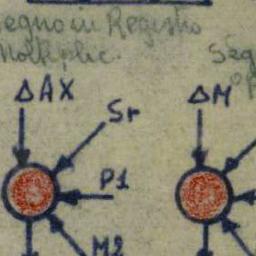 Segno in Registro
Moltiplic.
Seg
ΔAX
ΔM
Sr
P1
M2